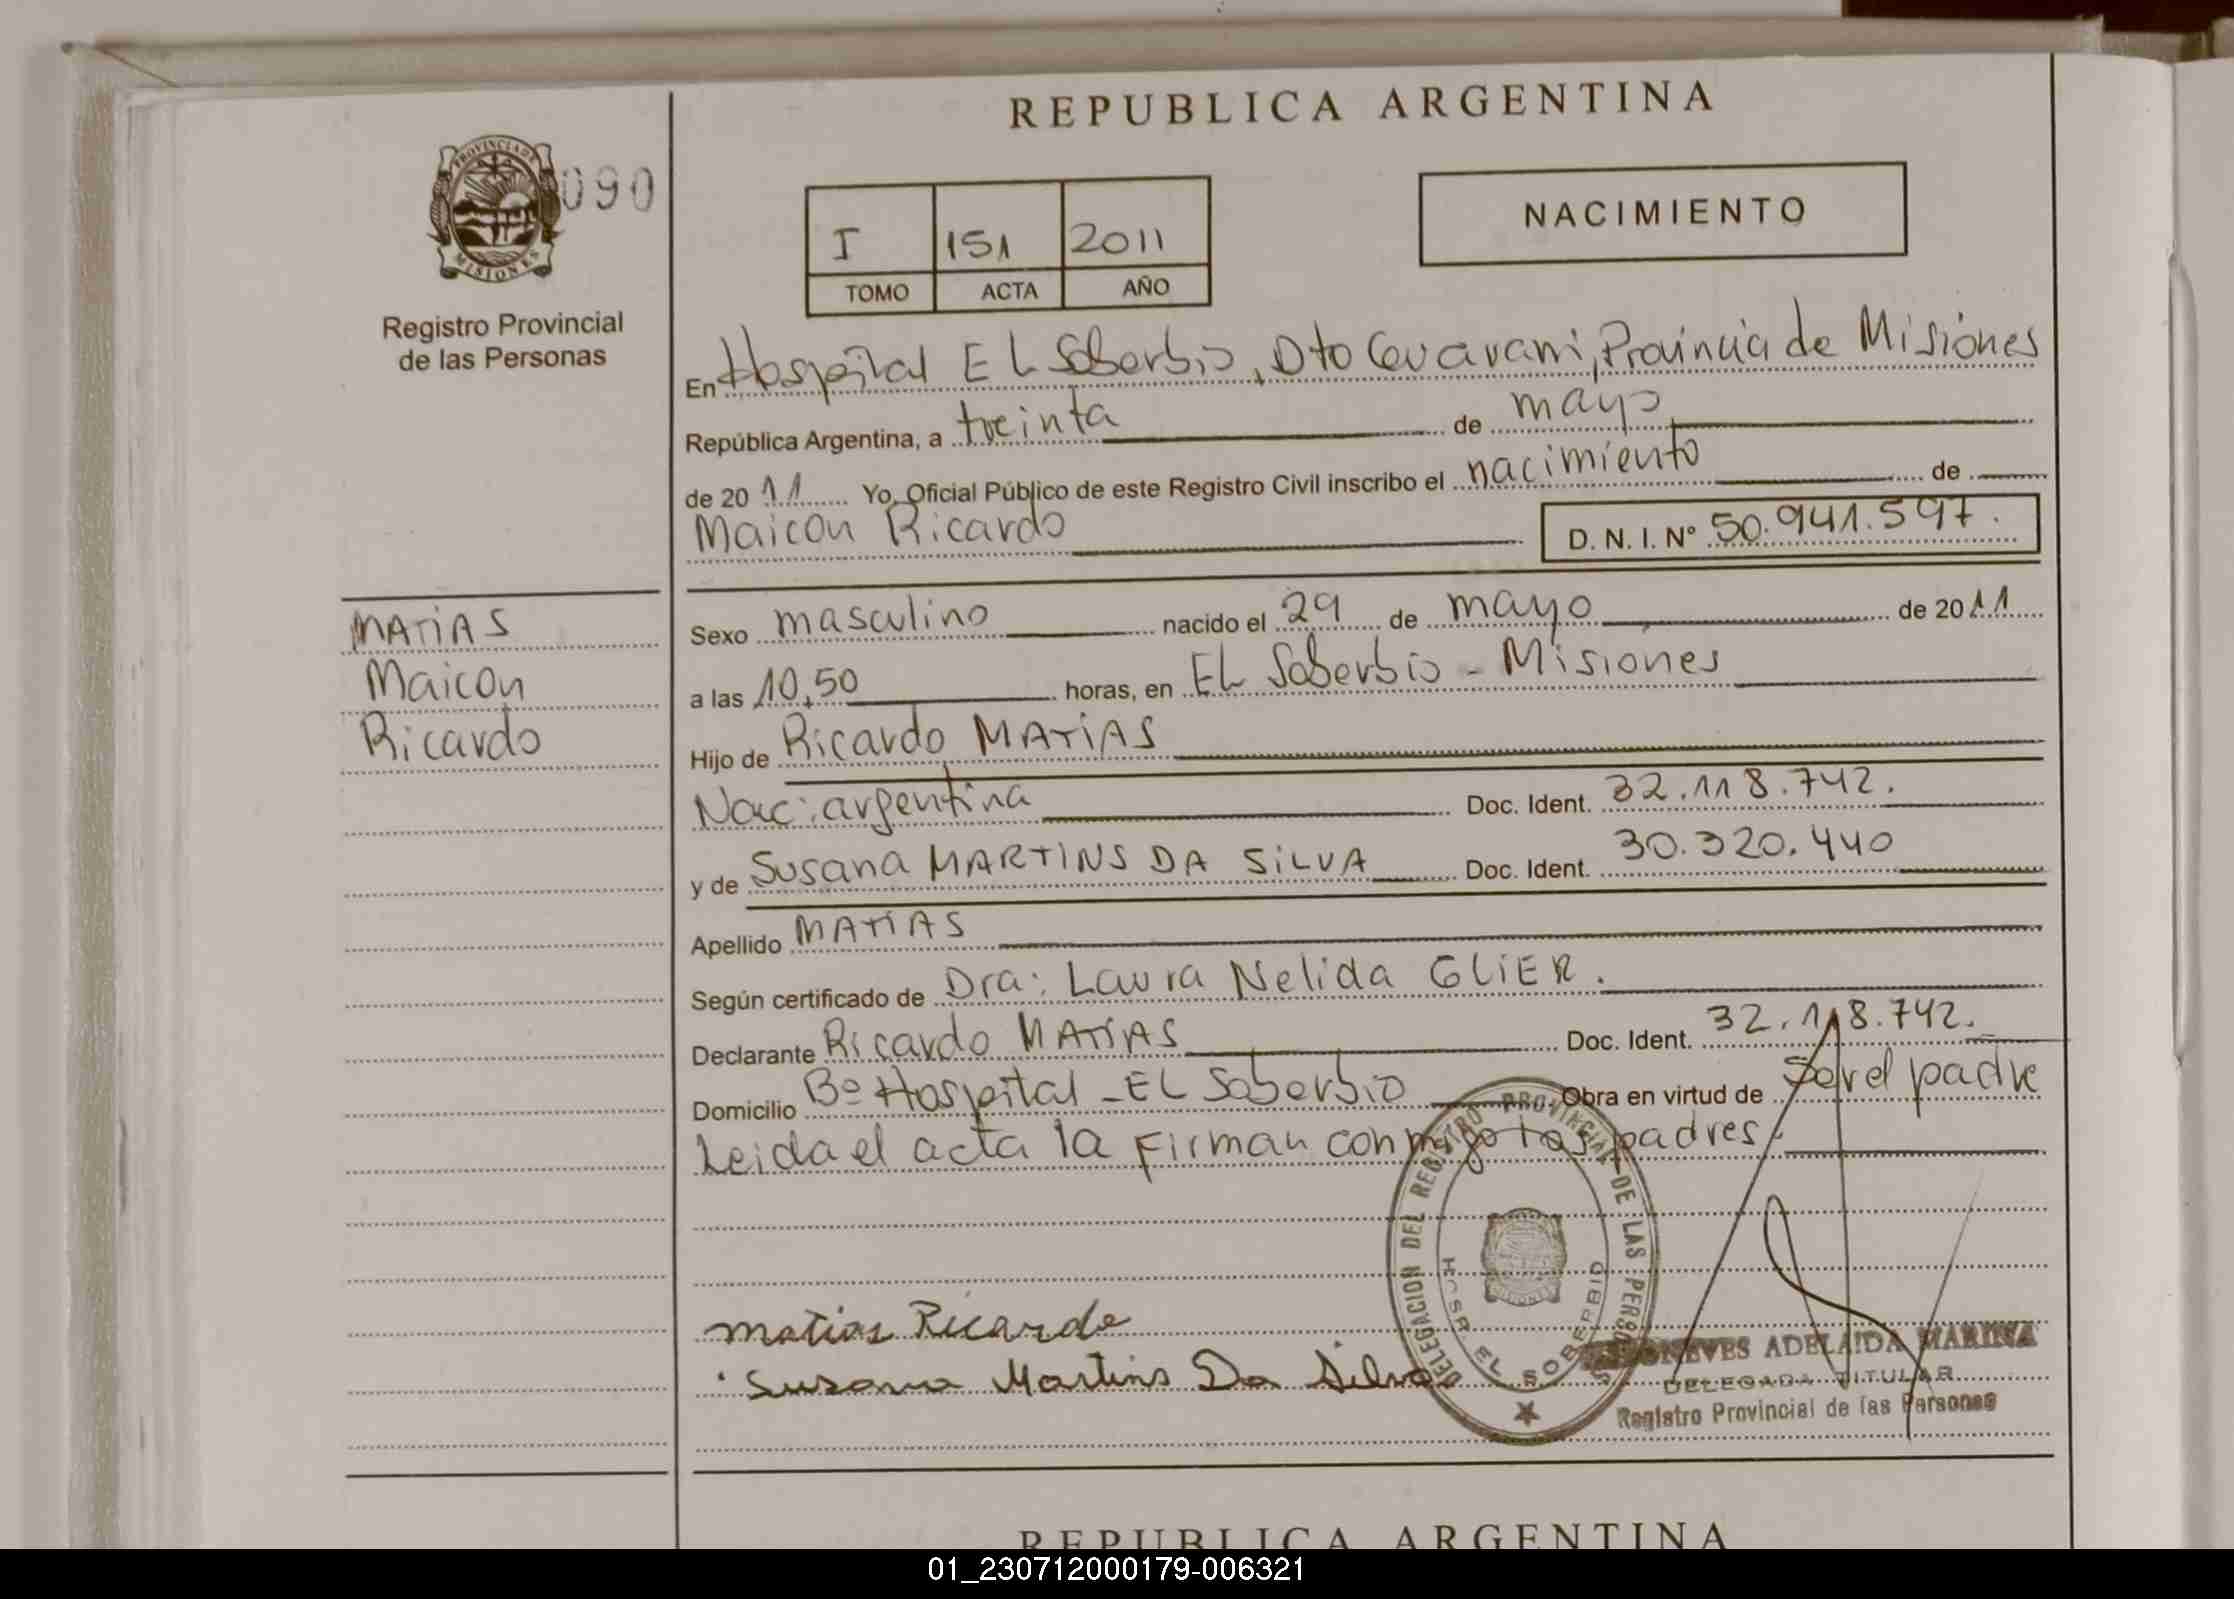 REPUBLICA ARGENTINA
PROVINCIA DE
MISIONES
090
Registro Provincial
de las Personas
I 151 2011
TOMO ACTA AÑO
NACIMIENTO
En Hospital EL Soberbio, Dto Guarani, Provincia de Misiones
República Argentina, a treinta de mayo
de 2011 Yo, Oficial Público de este Registro Civil inscribo el nacimiento de
Maicon Ricardo D. N. I. Nº 50.941.597.
MATIAS
Maicon
Ricardo
Sexo masculino nacido el 29 de mayo de 2011
a las 10,50 horas, en EL Soberbio - Misiones
Hijo de Ricardo MATIAS
Nac: argentina Doc. Ident. 32.118.742.
y de Susana MARTINS DA SILVA Doc. Ident. 30.320.440
Apellido MATIAS
Según certificado de Dra: Laura Nelida GLIER.
Declarante Ricardo MATIAS Doc. Ident. 32.118.742.
Domicilio Bº Hospital - EL Soberbio Obra en virtud de Ser el padre
Leida el acta la firman conmigo los padres.
Matias Ricardo
Susana Martins Da Silva
DELEGACION DEL REGISTRO PROVINCIAL DE LAS PERSONAS
HOSP. EL SOBERBIO
ADELAIDA
DELEGADA TITULAR
Registro Provincial de las Personas
REPUBLICA ARGENTINA
01_230712000179-006321